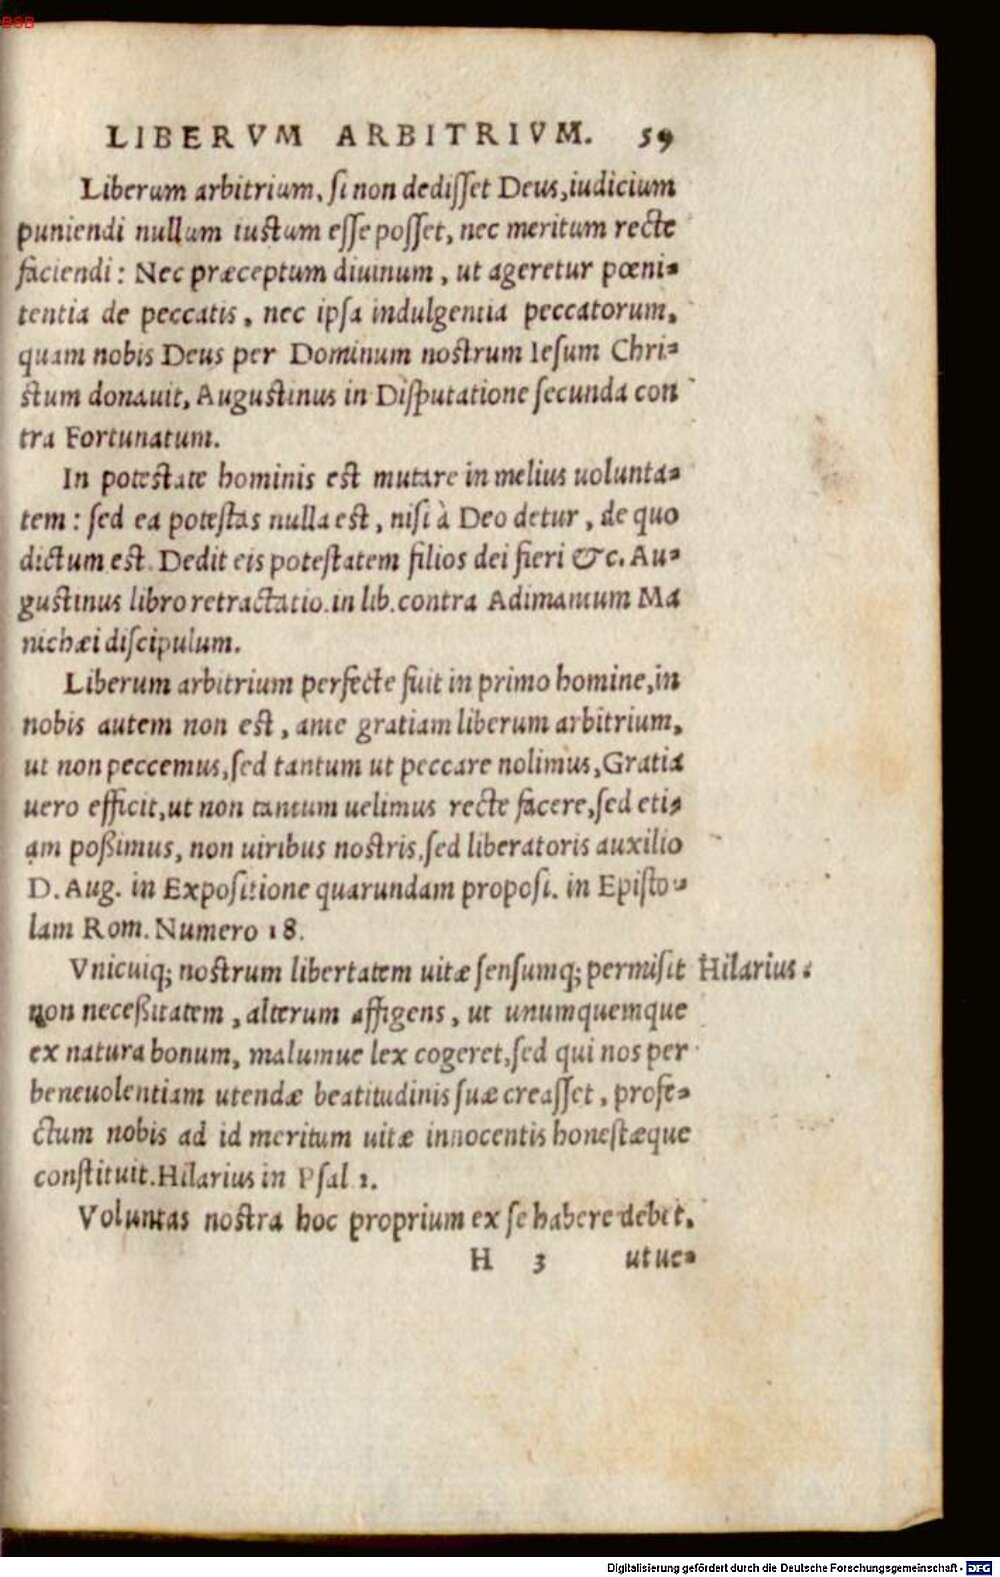 BSB
LIBERVM ARBITRIVM. 59
Liberum arbitrium, si non dedisset Deus, iudicium
puniendi nullum iustum esse posset, nec meritum recte
faciendi: Nec præceptum diuinum, ut ageretur pœni=
tentia de peccatis, nec ipsa indulgentia peccatorum,
quam nobis Deus per Dominum nostrum Iesum Chri=
stum donauit, Augustinus in Disputatione secunda con
tra Fortunatum.
In potestate hominis est mutare in melius uolunta=
tem: sed ea potestas nulla est, nisi à Deo detur, de quo
dictum est. Dedit eis potestatem filios dei fieri &c. Au=
gustinus libro retractatio. in lib. contra Adimantum Ma
nichæi discipulum.
Liberum arbitrium perfecte fuit in primo homine, in
nobis autem non est, ante gratiam liberum arbitrium,
ut non peccemus, sed tantum ut peccare nolimus, Gratia
uero efficit, ut non tantum uelimus recte facere, sed eti=
am poßimus, non uiribus nostris, sed liberatoris auxilio
D. Aug. in Expositione quarundam proposi. in Episto=
lam Rom. Numero 18.
Vnicuiq; nostrum libertatem uitæ sensumq; permisit Hilarius.
non neceßitatem, alterum affigens, ut unumquemque
ex natura bonum, malumue lex cogeret, sed qui nos per
beneuolentiam utendæ beatitudinis suæ creasset, profe=
ctum nobis ad id meritum uitæ innocentis honestæque
constituit. Hilarius in Psal 2.
Voluntas nostra hoc proprium ex se habere debet,
H 3 ut ue=
Digitalisierung gefördert durch die Deutsche Forschungsgemeinschaft - DFG